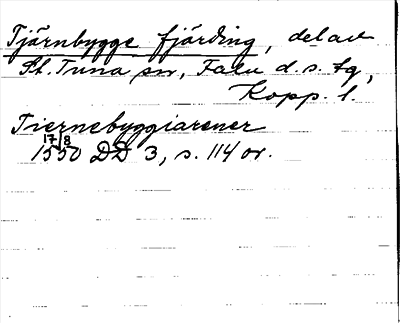 Tjärnbygge fjärding, del av
St. Tuna sn, Falu d.s. tg,
Kopp. l.
Tiernebyggiarener
17/8
1550 DD 3, s. 114 or.